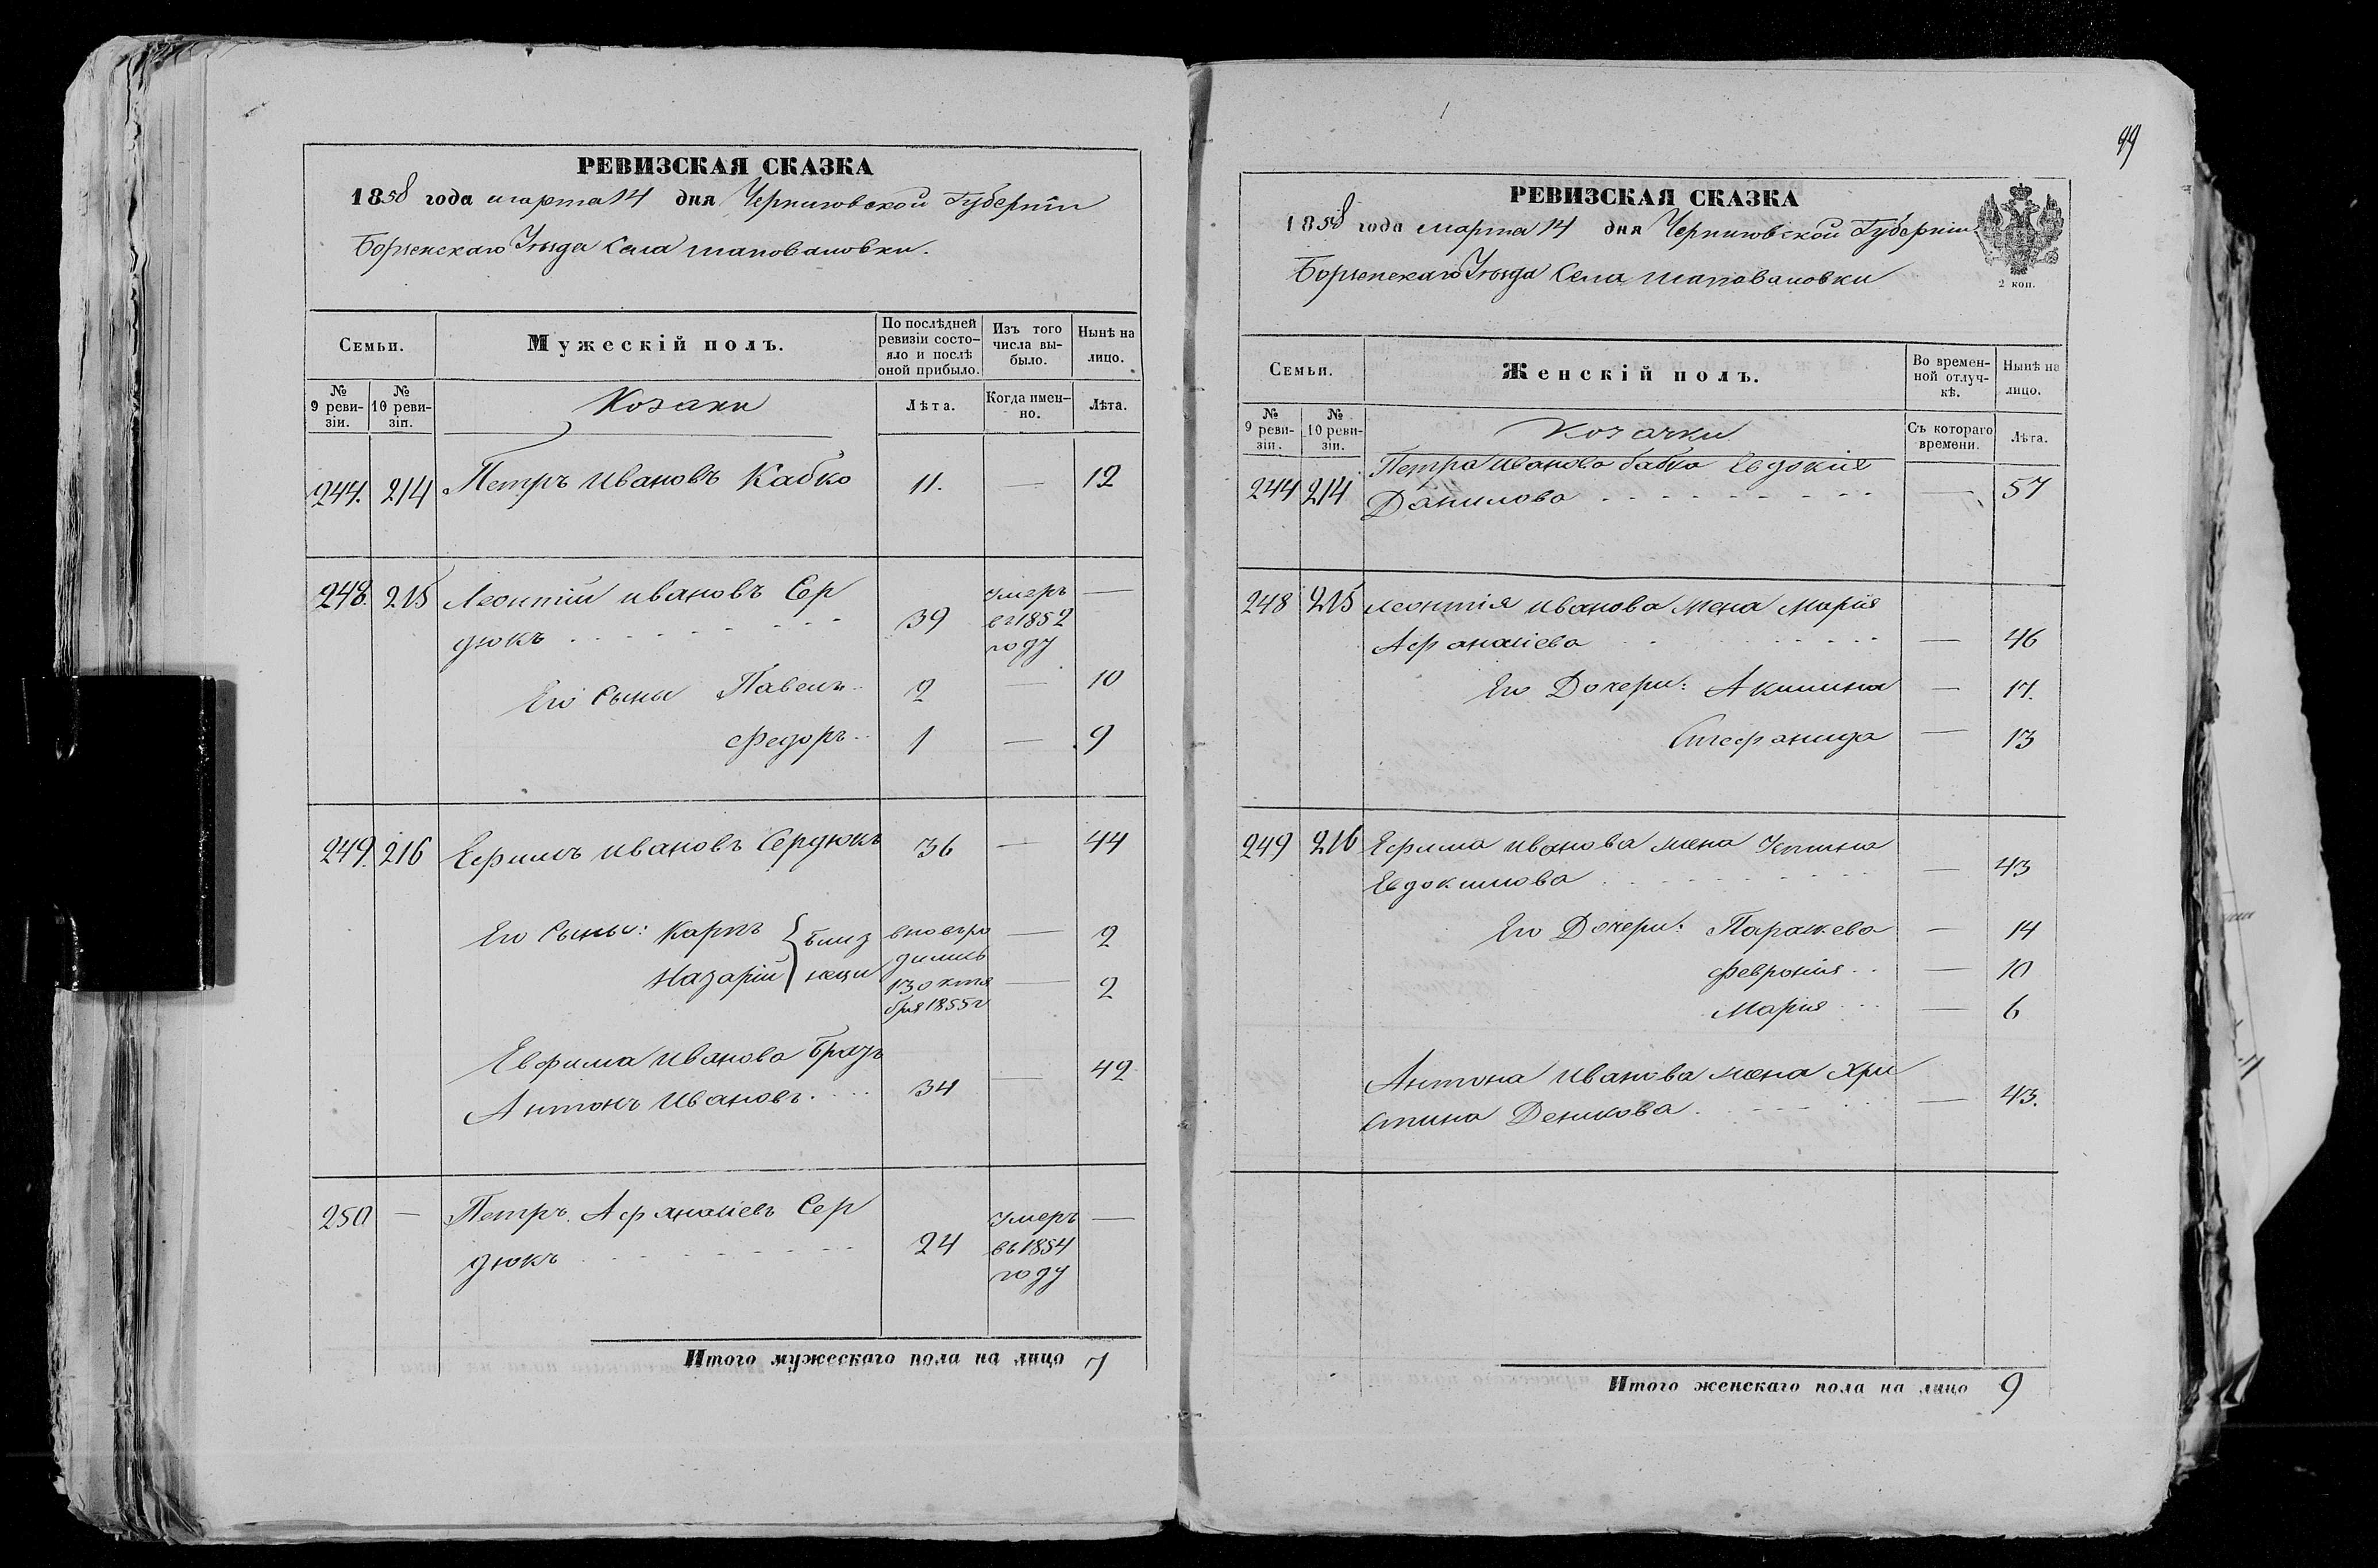 РЕВИЗСКАЯ СКАЗКА
1858 года марта 14 дня Черниговской Губерніи
Борзенскаго Уѣзда Села Шаповаловки.
Семьи.
Мужескій полъ.
По послѣдней ревизіи состо-
яло и послѣ оной прибыло.
Изъ того числа вы-
было.
Нынѣ на лицо.
№ 9 реви-
зіи.
№ 10 реви-
зіи.
Козаки
Лѣта.
Когда имен-
но.
Лѣта.
244. 214 Петръ Ивановъ Кабко 11. — 12
248. 215 Леонтій Ивановъ Сер
дюкъ 39 умеръ въ 1852 году —
Его Сыны Павелъ 2 — 10
Федоръ 1 — 9
249. 216 Ефимъ Ивановъ Сердюкъ 36 — 44
Его Сыны: Карпъ близ вновь ро — 2
Назарій нецы дились 13 октя — 2
бря 1855 г
Евфима Иванова братъ
Антонъ Ивановъ 34 — 42
250 — Петръ Афанасіевъ Сер
дюкъ 24 умеръ въ 1854 году —
Итого мужескаго пола на лицо 7
99
РЕВИЗСКАЯ СКАЗКА
1858 года марта 14 дня Черниговской Губерніи
Борзенскаго Уѣзда Села Шаповаловки
2 коп.
Семьи.
Женскій полъ.
Во времен-
ной отлуч-
кѣ.
Нынѣ на лицо.
№ 9 реви-
зіи.
№ 10 реви-
зіи.
Козачки
Съ котораго времени.
Лѣта.
244 214 Петра Иванова бабка Евдокія
Данилова — 57
248 215 Леонтія Иванова жена Марія
Афанасіева — 46
Его Дочери: Акилина — 17.
Стефанида — 13
249 216 Ефима Иванова жена Устина
Евдокимова — 43
Его Дочери: Параскева — 14
Феврония — 10
Марія — 6
Антона Иванова жена Хри
стина Денисова — 43.
Итого женскаго пола на лицо 9